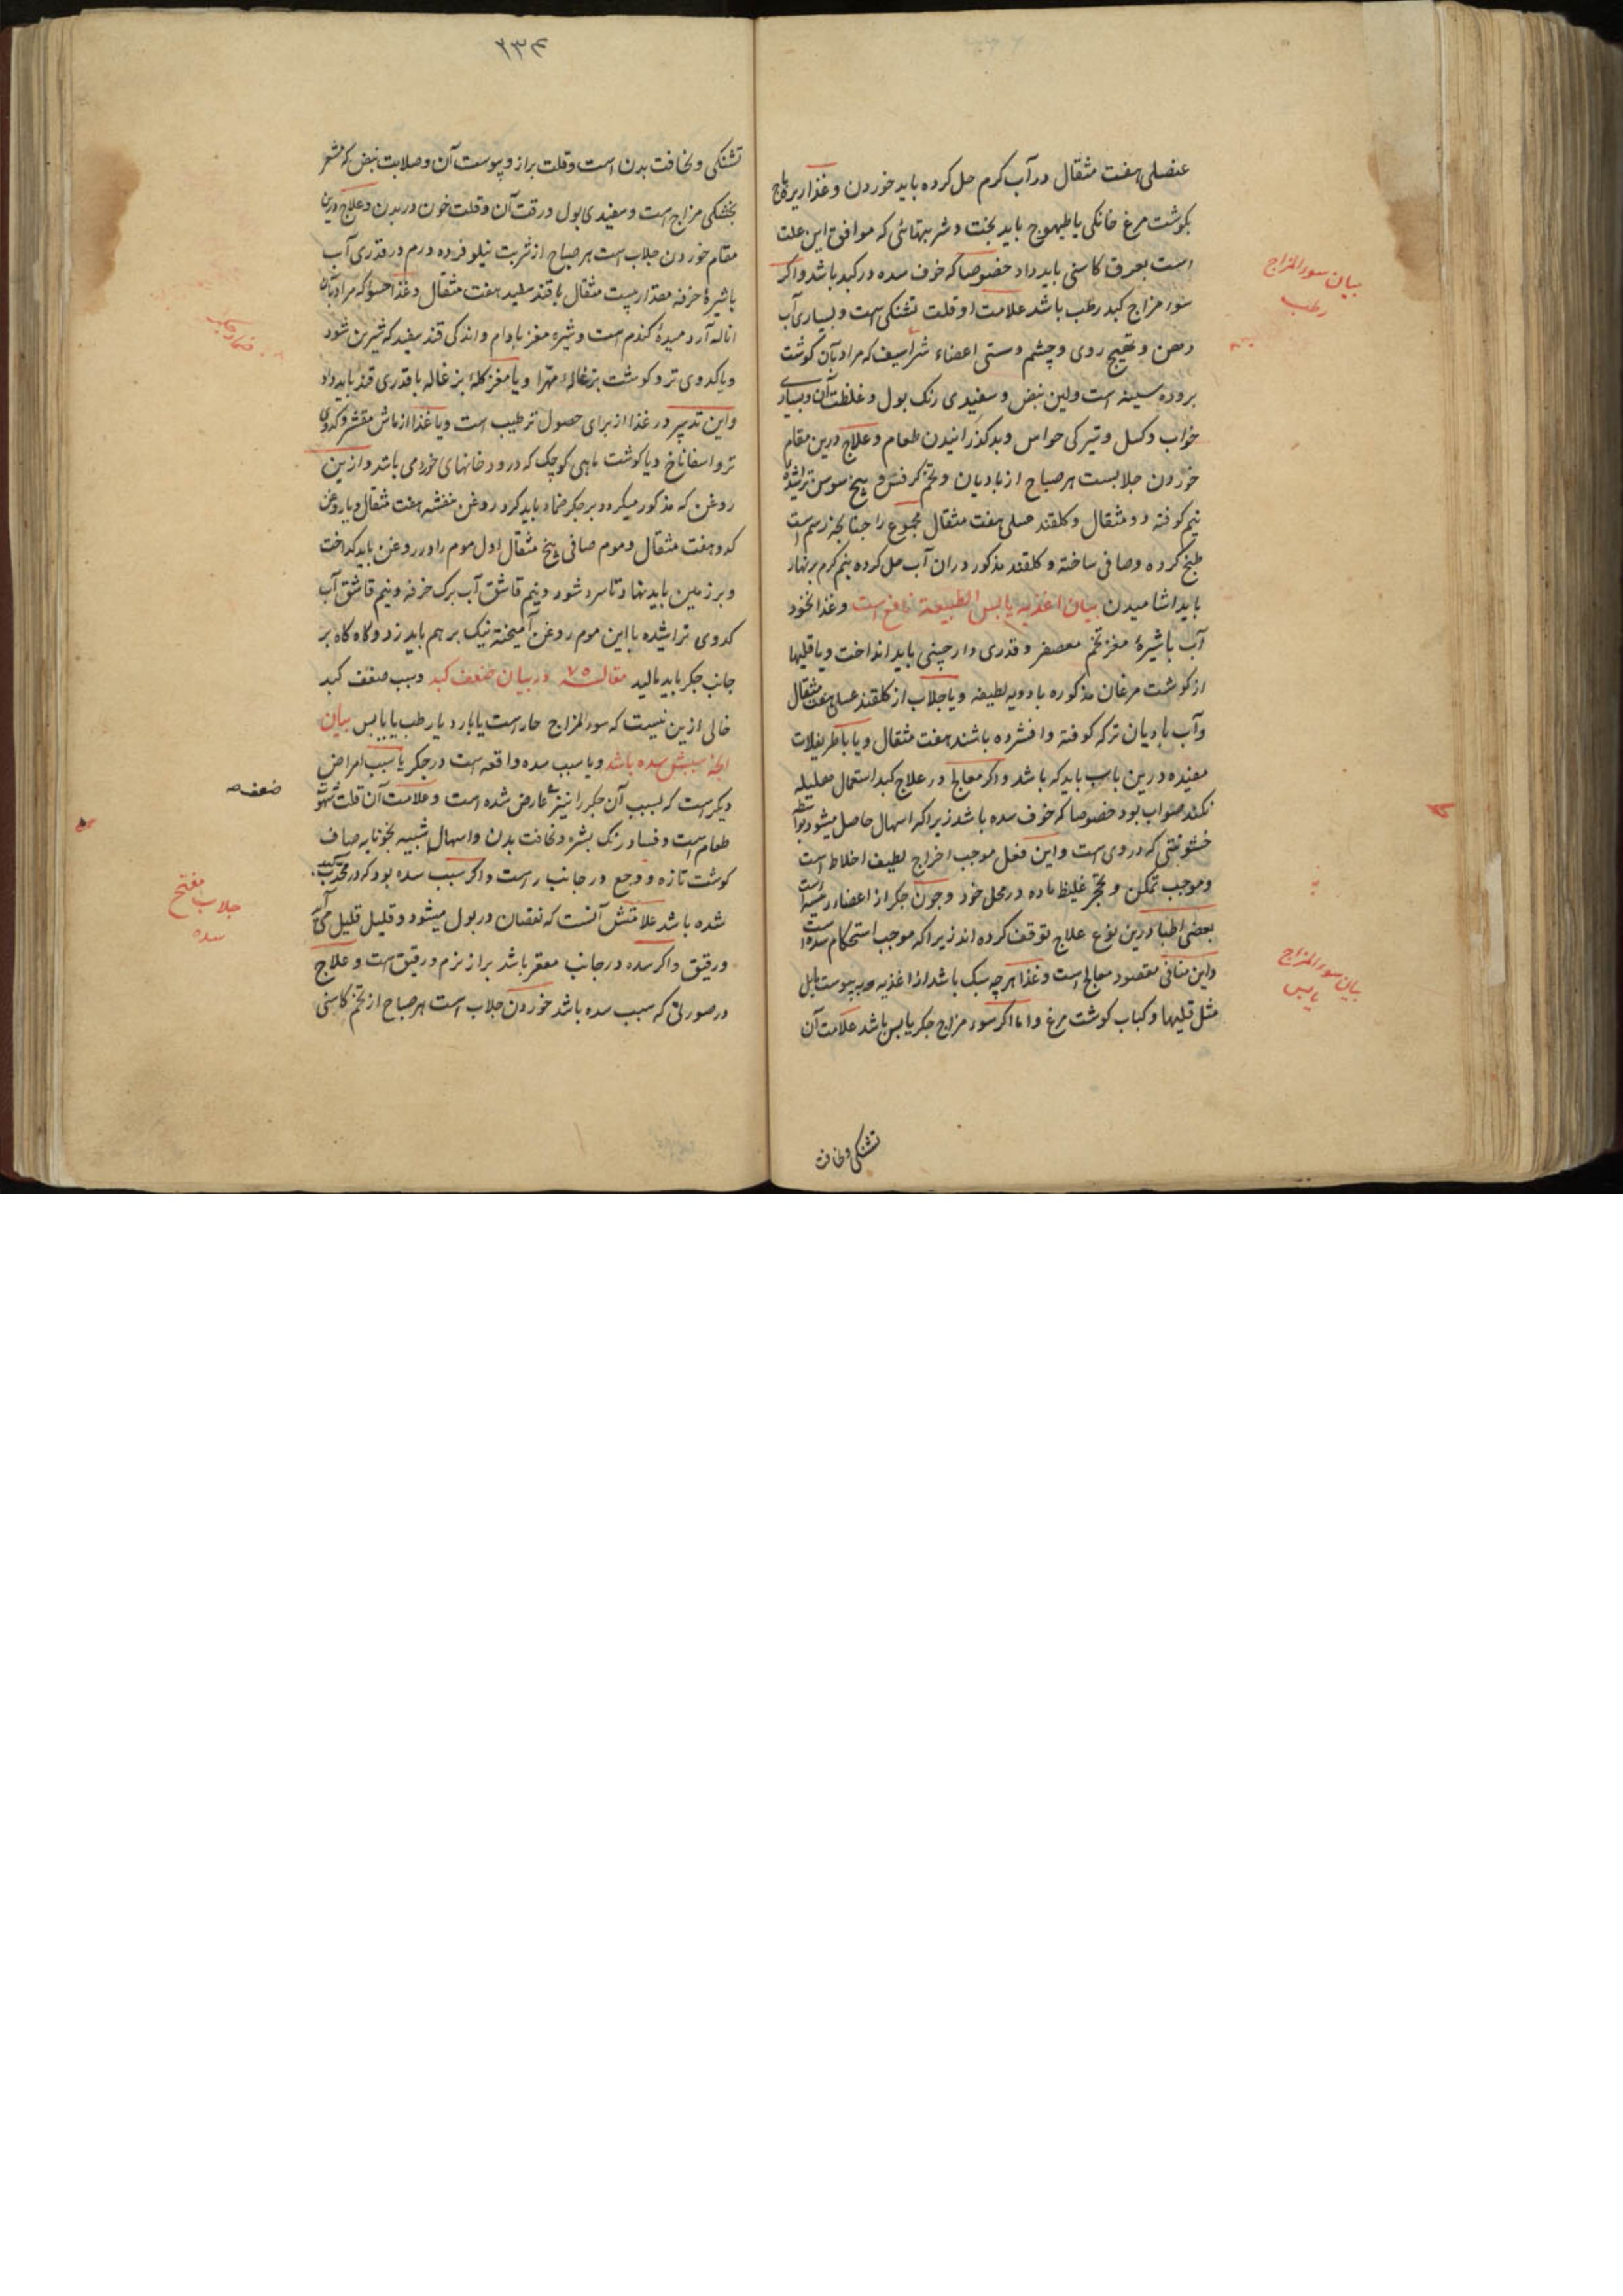 عنصلی هفت مثقال در آب کرم حل کرده باید خوردن و غذا زیره باج
بکوشت مرغ خانکی یا طیهوج باید پخت و شربتهائی که موافق این علت
است بعرق کاسنی باید داد خصوصا که خوف سده در کبد باشد و اکر
سوء مزاج کبد رطب باشد علامت او قلت تشنکی است و بسیاری آب
دهن و تهیج روی و چشم و سستی اعضاء شراسیف که مراد بآن کوشت
بروده سینه است و لین نبض و سفیدی رنک بول و غلظت آن و بسیاری
خواب و کسل و تیرکی حواس و بد کذرانیدن طعام و علاج درین مقام
خوردن جلابست هر صباح از بادیان و تخم کرفش و بیخ سوس تراشیدهٔ
نیم کوفته دو مثقال و کلقند عسلی هفت مثقال مجموع را چنانچه رسم است
طبخ کرده و صافی ساخته و کلقند مذکور در ان آب حل کرده نیم کرم بر نهار
باید اشامیدن بیان اغذیه یابس الطبیعة نافع است و غذا نخود
آب با شیرهٔ مغز تخم معصفر و قدری دارچینی باید انداخت و یا قلیها
از کوشت مرغان مذکوره با دویه لطیفه و یا جلاب از کلقند عسلی هفت مثقال
و آب بادیان تر که کوفته و افشرده باشند هفت مثقال و یا باطریفلات
مفیده درین باب باید که باشد و اکر معالج در علاج کبد استعمال هلیله
نکند صواب بود خصوصا که خوف سده باشد زیرا که اسهال حاصل میشود بواسطه
خشونتی که در وی است و این فعل موجب اخراج لطیف اخلاط است
و موجب تمکن و تحجر غلیظ ماده در محل خود و چون جکر از اعضاء رئیسه است
بعضی اطبا درین نوع علاج توقف کرده اند زیرا که موجب استحکام سده است
و این منافی مقصود معالج است و غذا هر چه سبک باشد از اغذیه که به یبوست مایل
مثل قلیها و کباب کوشت مرغ و اما اکر سوء مزاج جکر یابس باشد علامت آن
تشنکی و نحافت
بیان سوء المزاج
رطب
بیان سوء المزاج
یابس
۲۳۴
تشنکی و نحافت بدن است و قلت براز و یبوست آن و صلابت نبض که مشعر
بخشکی مزاج است و سفیدی بول و رقت آن و قلت خون در بدن و علاج درین
مقام خوردن جلاب است هر صباح از شربت نیلوفر ده درم در قدری آب
با شیرهٔ خرفه مقدار بیست مثقال با قند سفید هفت مثقال و غذا حسو که مراد بآن
اناله آرد میدهٔ کندم است و شیره مغز بادام و اندکی قند سفید که شیرین شود
و یا کدوی تر و کوشت بزغالهٔ مهرا و یا مغز کلهٔ بزغاله با قدری قند باید داد
و این تدبیر در غذا از برای حصول ترطیب است و یا غذا از ماش مقشر و کدوی
تر و اسفاناخ و یا کوشت ماهی کوچک که در رودخانهای خورد می باشد و ازین
روغن که مذکور میکردد بر جکر ضماد باید کرد روغن بنفشه هفت مثقال و یا روغن
کدو هفت مثقال و موم صافی پنج مثقال اول موم را در روغن باید کداخت
و بر زمین باید نهاد تا سرد شود و نیم قاشق آب برک خرفه و نیم قاشق آب
کدوی تراشیده با این موم روغن آمیخته نیک بر هم باید زد و کاه کاه بر
جانب جکر باید مالید مقاله ۷۵ در بیان ضعف کبد و سبب ضعف کبد
خالی ازین نیست که سوء المزاج حار است یا بارد یا رطب یا یابس بیان
آنچه سببش سده باشد و یا سبب سده واقعه است در جکر یا سبب امراض
دیکر است که بسبب آن جکر را نیز عارض شده است و علامت آن قلت شهوت
طعام است و فساد رنک بشره و نحافت بدن و اسهال شبیه بخونابه صاف
کوشت تازه و وجع در جانب راست و اکر سبب سده بود که در محدب کبد
شده باشد علامتش آنست که نقصان در بول میشود و قلیل قلیل می آید
و رقیق و اکر سده در جانب مقعر باشد براز نرم و رقیق است و علاج
در صورتی که سبب سده باشد خوردن جلاب است هر صباح از تخم کاسنی
ضعف
جلاب مفتح
سده